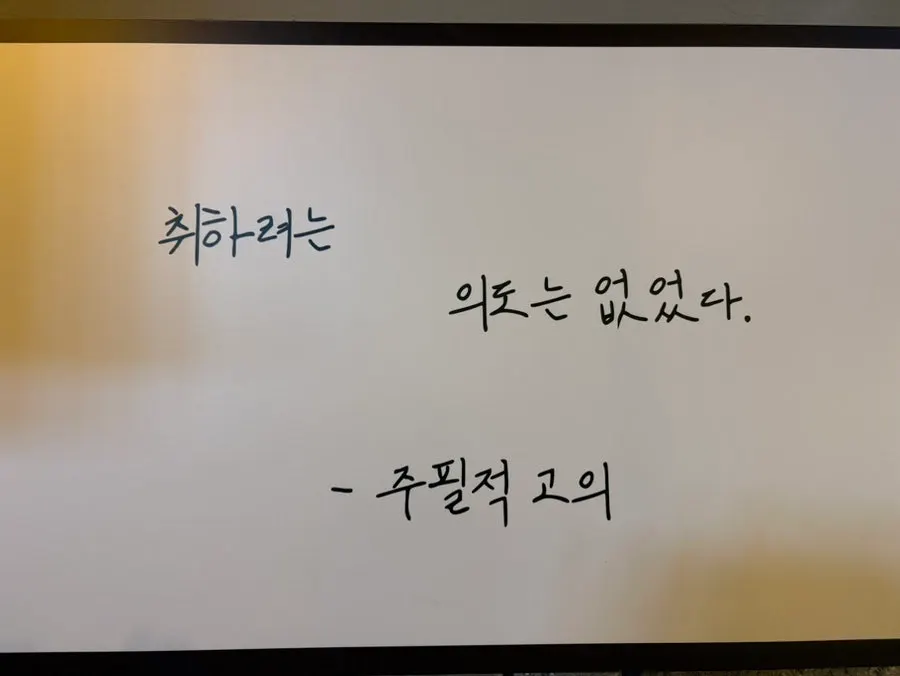 취하려는
의도는 없었다.
- 주필적 고의